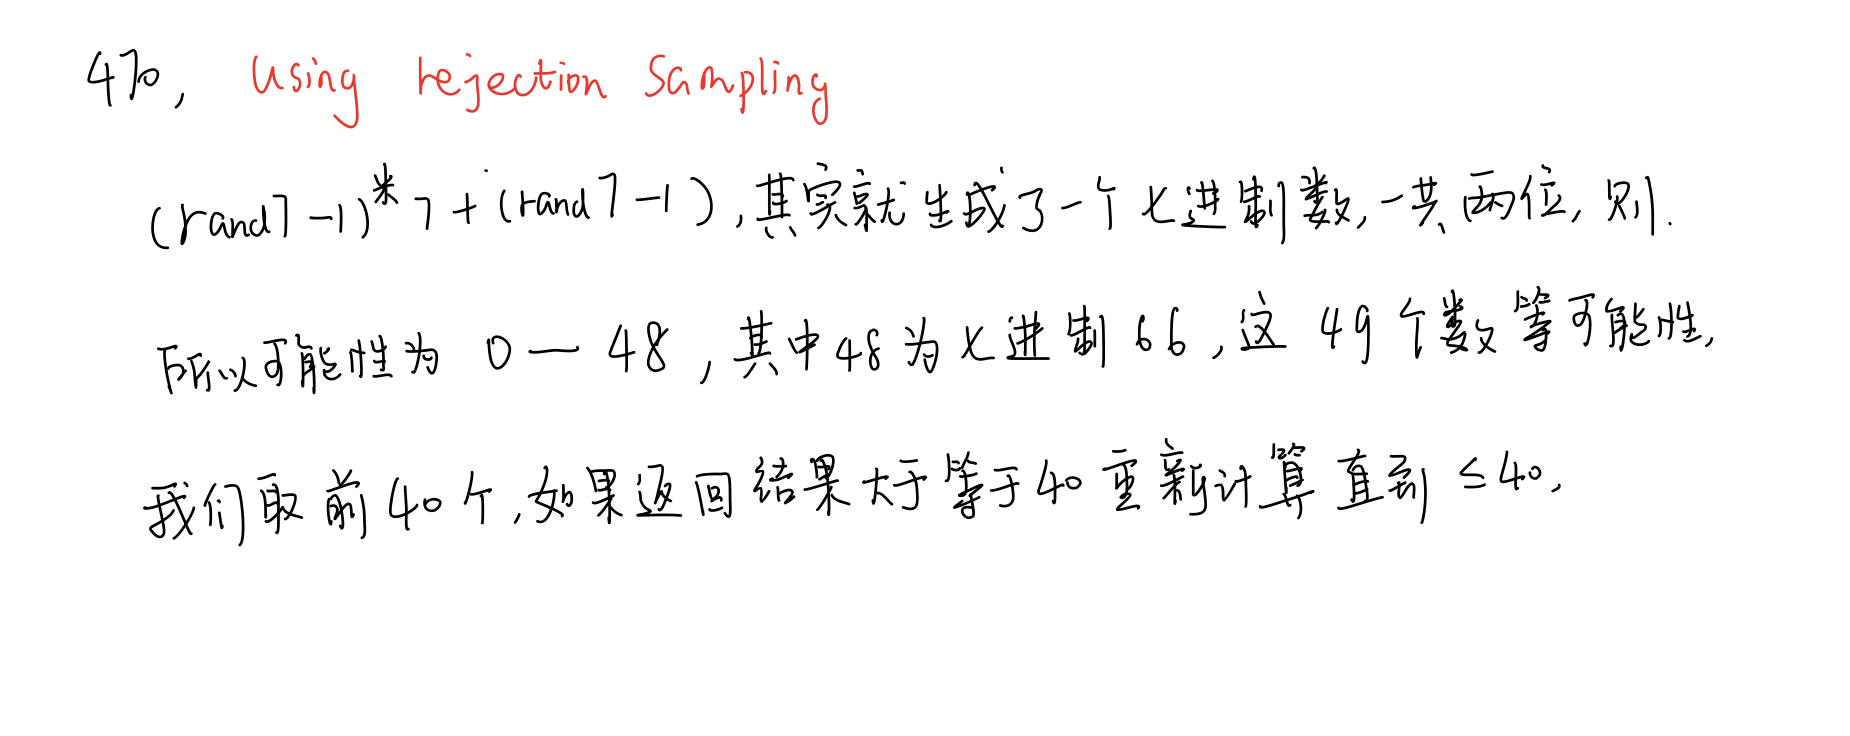 470, Using rejection Sampling
(rand7-1)*7+(rand7-1),其实就生成了一个七进制数,一共两位,则.
所以可能性为 0—48,其中48为七进制66,这49个数等可能性,
我们取前40个,如果返回结果大于等于40重新计算直到≤40,